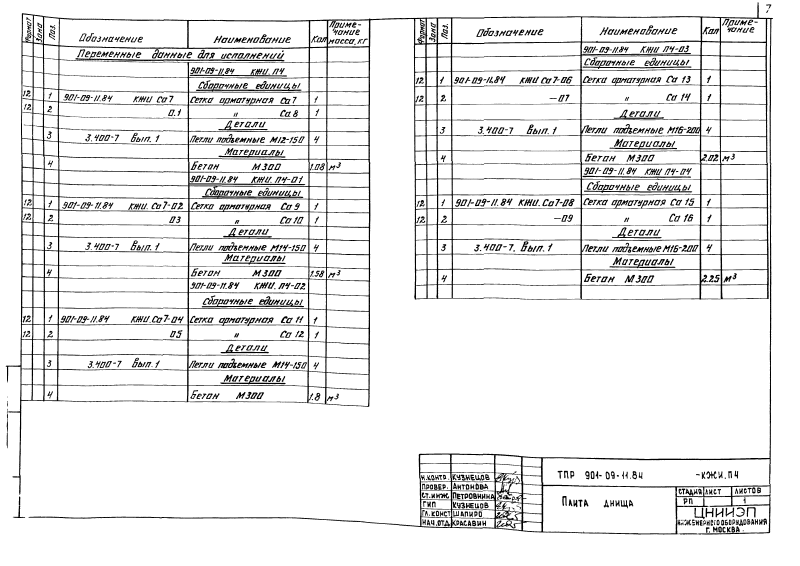 7
Формат Зона Поз. Обозначение Наименование Кол Приме-чание масса, кг
Переменные данные для исполнений
901-09-11.84 КЖИ. П4
Сборочные единицы
12 1 901-09-11.84 КЖИ Са7 Сетка арматурная Са 7 1
12 2 0.1 " Са 8 1
Детали
3 3.400-7 Вып. 1 Петли подъемные М12-150 4
Материалы
4 Бетон М300 1.08 м³
901-09-11.84 КЖИ. П4-01
Сборочные единицы
12 1 901-09-11.84 КЖИ. Са7-02 Сетка арматурная Са 9 1
12 2 03 " Са 10 1
Детали
3 3.400-7 Вып. 1 Петли подъемные М14-150 4
Материалы
4 Бетон М300 1.58 м³
901-09-11.84 КЖИ. П4-02
Сборочные единицы
12 1 901-09-11.84 КЖИ. Са7-04 Сетка арматурная Са 11 1
12 2 05 " Са 12 1
Детали
3 3.400-7 Вып. 1 Петли подъемные М14-150 4
Материалы
4 Бетон М300 1.8 м³
Формат Зона Поз. Обозначение Наименование Кол Приме-чание
901-09-11.84 КЖИ П4-03
Сборочные единицы
12 1 901-09-11.84 КЖИ Са7-06 Сетка арматурная Са 13 1
12 2 —07 " Са 14 1
Детали
3 3.400-7 Вып. 1 Петли подъемные М16-200 4
Материалы
4 Бетон М300 2.02 м³
901-09-11.84 КЖИ П4-04
Сборочные единицы
12 1 901-09-11.84 КЖИ. Са7-08 Сетка арматурная Са 15 1
12 2 —09 " Са 16 1
Детали
3 3.400-7. Вып. 1 Петли подъемные М16-200 4
Материалы
4 Бетон М300 2.25 м³
Н.КОНТР. КУЗНЕЦОВ
ПРОВЕР. АНТОНОВА
СТ. ИНЖ. ПЕТРОВНИНА
ГИП КУЗНЕЦОВ
ГЛ. КОНСТ ШАПИРО
НАЧ. ОТД. КРАСАВИН
ТПР 901-09-11.84 -КЖИ.П4
Плита днища
СТАДИЯ ЛИСТ ЛИСТОВ
РП 1 1
ЦНИИЭП
ИНЖЕНЕРНОГО ОБОРУДОВАНИЯ
Г. МОСКВА.